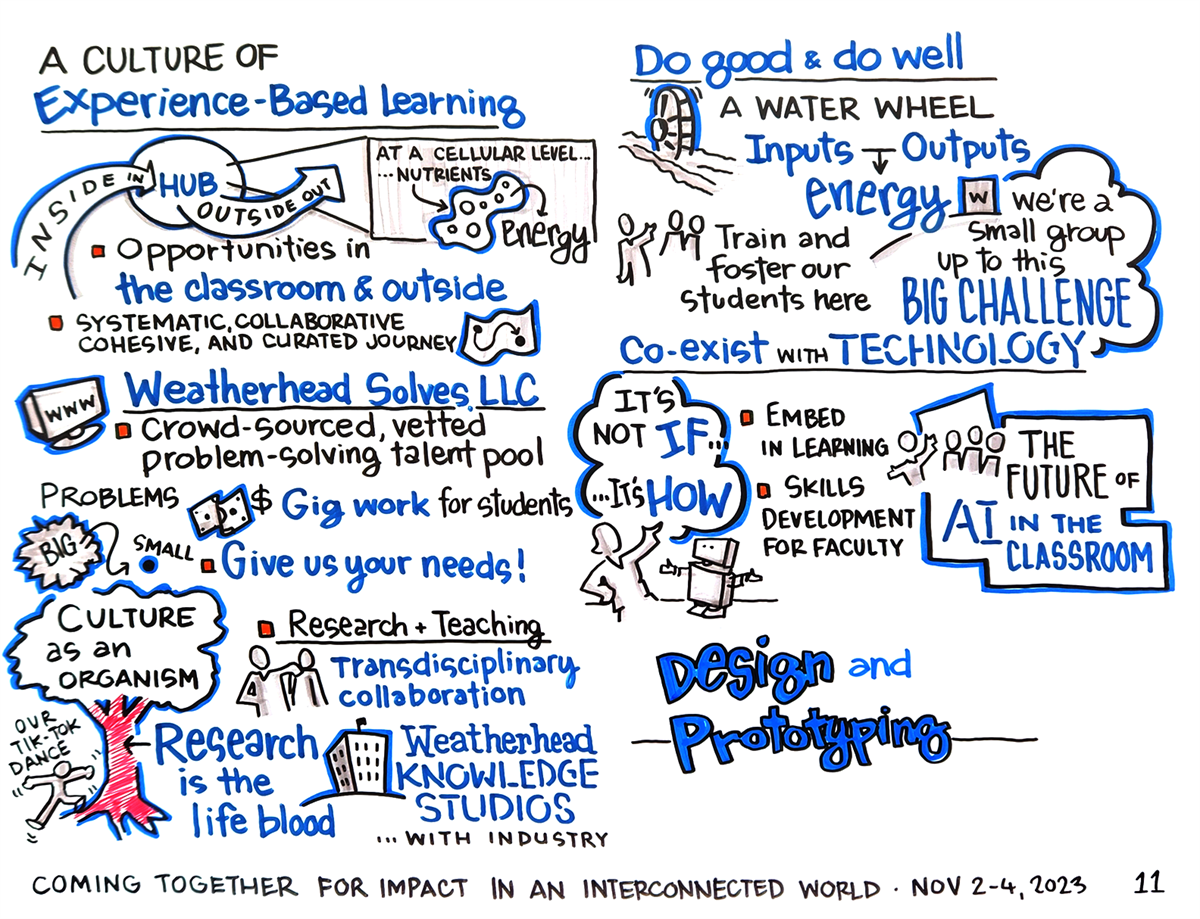 A CULTURE OF
Experience-Based Learning
INSIDE IN
HUB
OUTSIDE OUT
AT A CELLULAR LEVEL...
...NUTRIENTS
Energy
Opportunities in
the classroom & outside
SYSTEMATIC, COLLABORATIVE
COHESIVE, AND CURATED JOURNEY
WWW
Weatherhead Solves, LLC
Crowd-sourced, vetted
problem-solving talent pool
PROBLEMS
BIG
SMALL
$ Gig work for students
Give us your needs!
CULTURE
as an
ORGANISM
Research + Teaching
Transdisciplinary
collaboration
OUR
TIK-TOK
DANCE
Research
is the
life blood
Weatherhead
KNOWLEDGE
STUDIOS
...WITH INDUSTRY
Do good & do well
A WATER WHEEL
Inputs Outputs
energy
W
we're a
small group
up to this
BIG CHALLENGE
Train and
foster our
students here
Co-exist WITH TECHNOLOGY
IT'S
NOT IF...
...It's HOW
EMBED
IN LEARNING
SKILLS
DEVELOPMENT
FOR FACULTY
THE
FUTURE OF
AI IN THE
CLASSROOM
Design and
Prototyping
COMING TOGETHER FOR IMPACT IN AN INTERCONNECTED WORLD · NOV 2-4, 2023 11